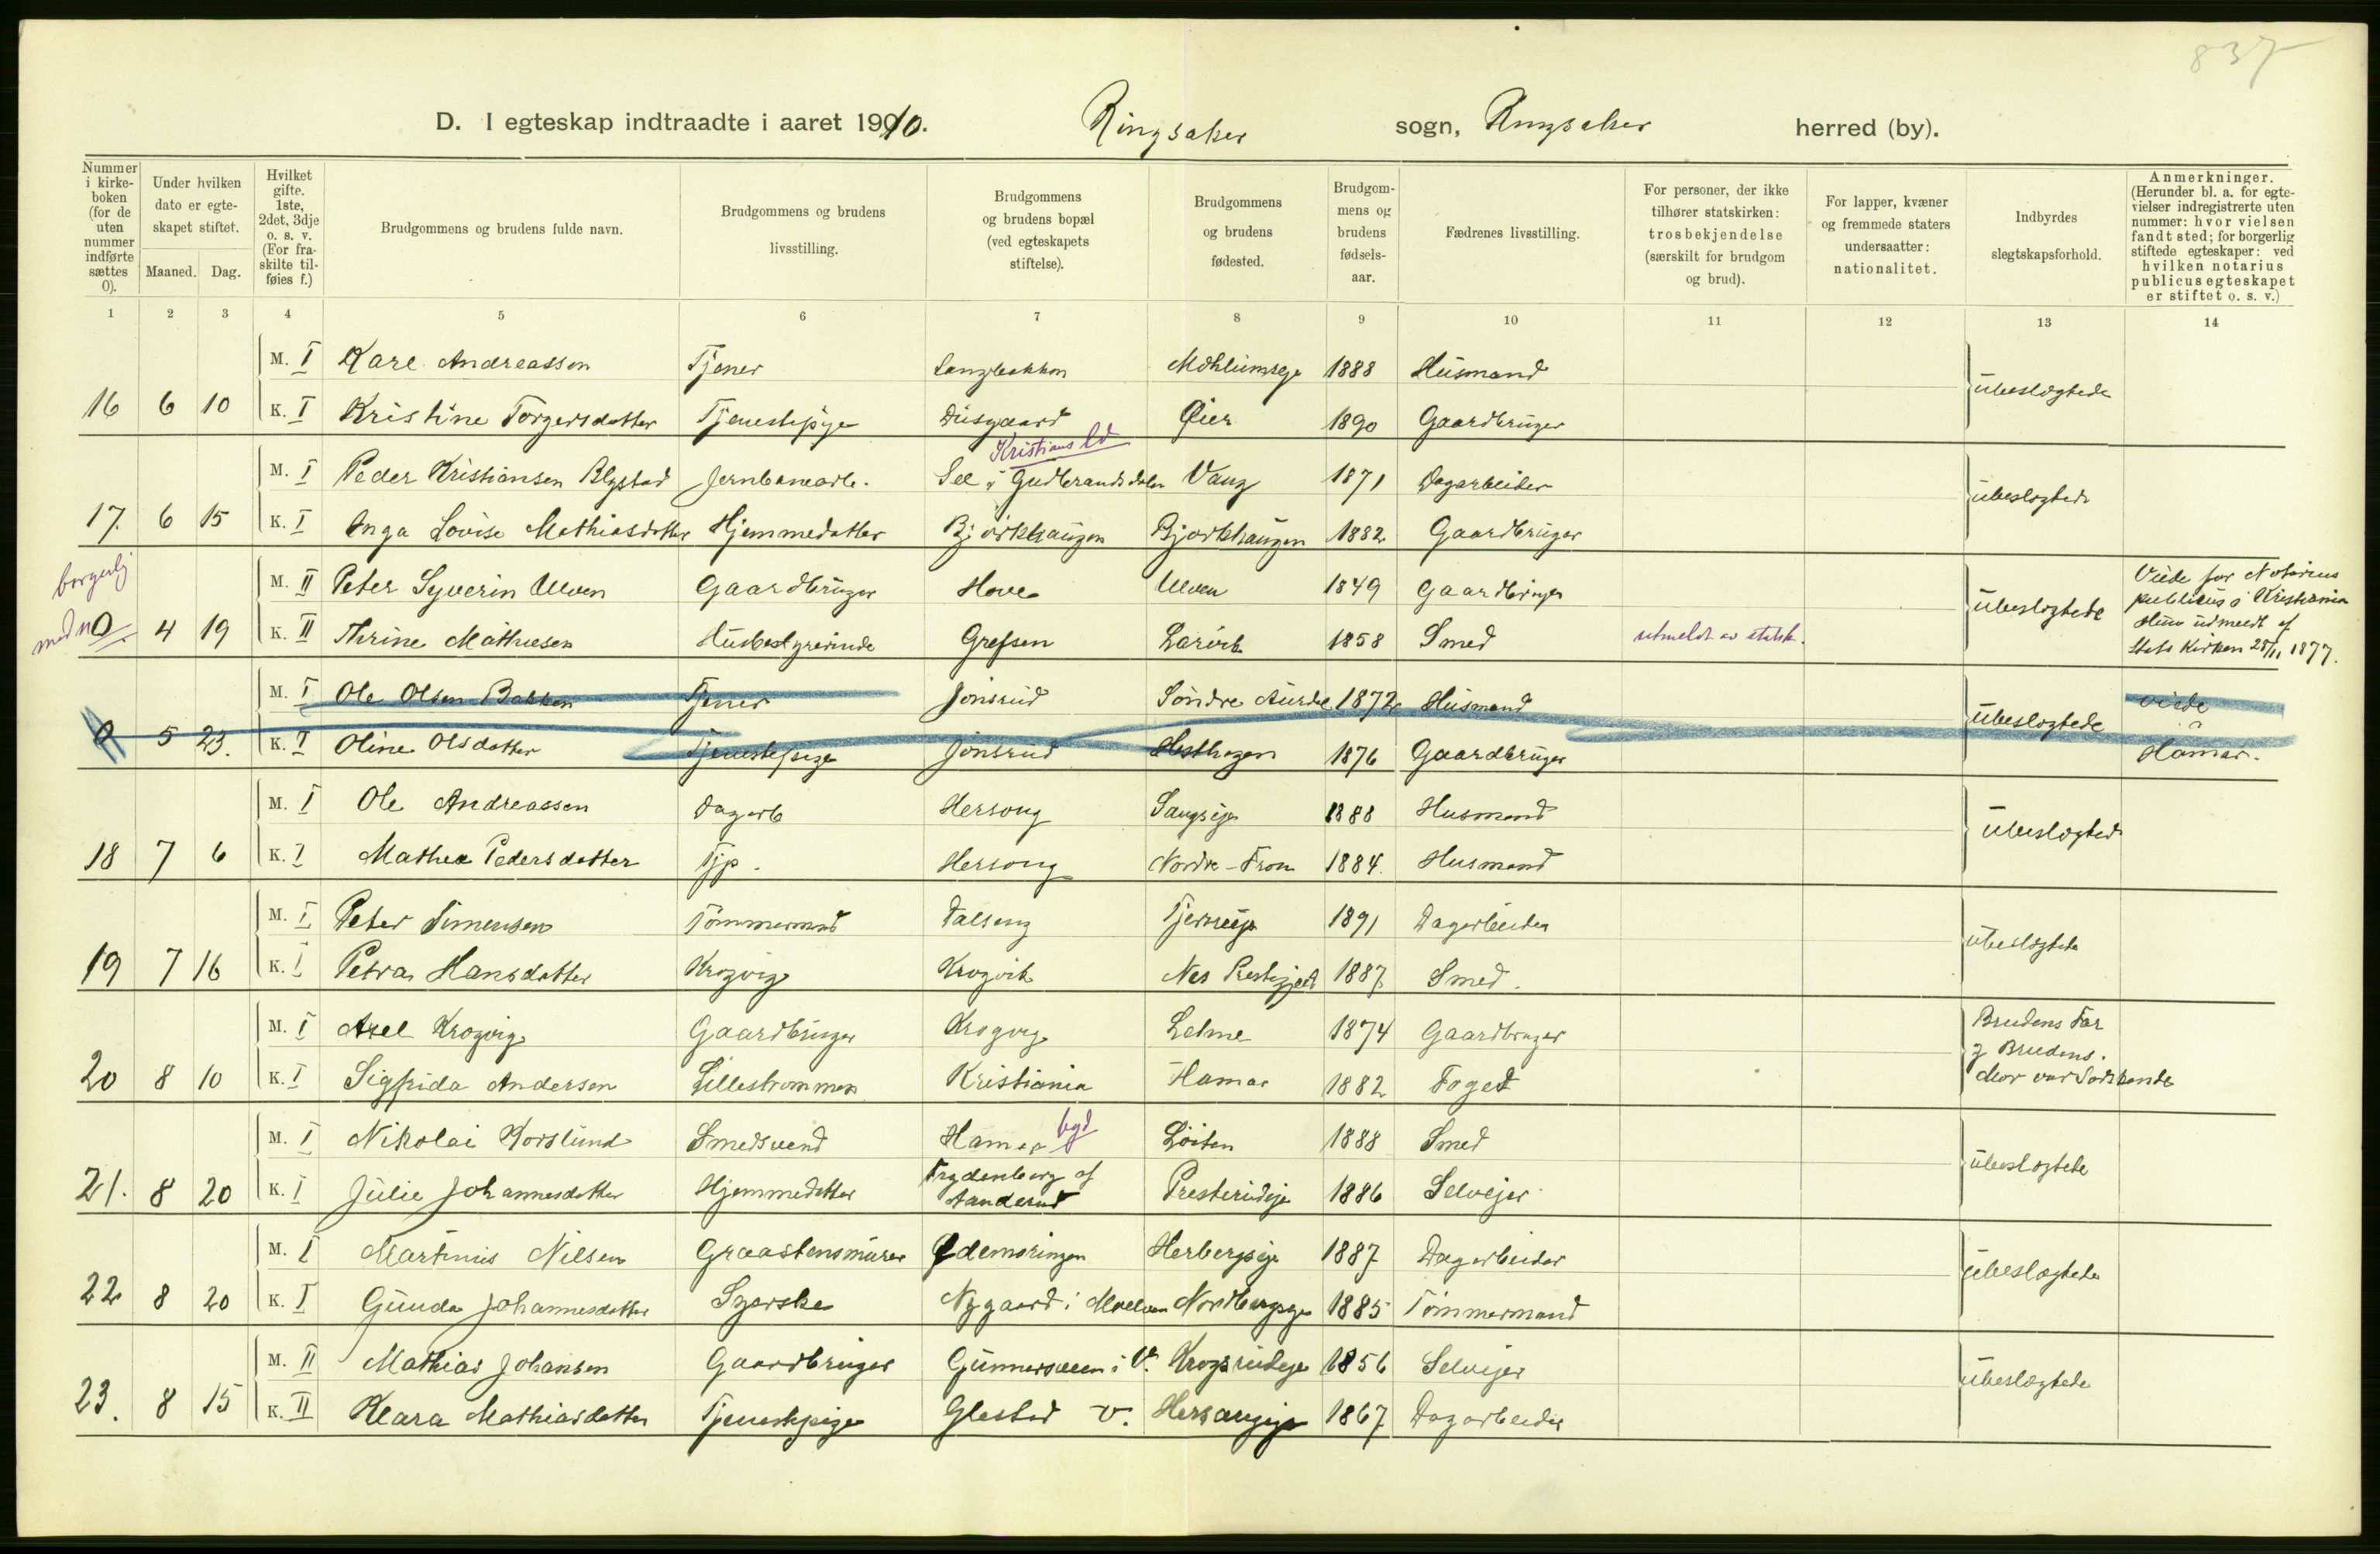 837
D. I egteskap indtraadte i aaret 1910. Ringsaker sogn, Ringsaker herred (by).
Nummer i kirkeboken (for de uten nummer indførte sættes 0). Under hvilken dato er egteskapet stiftet. Maaned. Dag. Hvilket gifte. 1ste, 2det, 3dje o. s. v. (For fraskilte tilføies f.) Brudgommens og brudens fulde navn. Brudgommens og brudens livsstilling. Brudgommens og brudens bopæl (ved egteskapets stiftelse). Brudgommens og brudens fødested. Brudgommens og brudens fødselsaar. Fædrenes livsstilling. For personer, der ikke tilhører statskirken: trosbekjendelse (særskilt for brudgom og brud). For lapper, kvæner og fremmede staters undersaatter: nationalitet. Indbyrdes slegtskapsforhold. Anmerkninger. (Herunder bl. a. for egtevielser indregistrerte uten nummer: hvor vielsen fandt sted; for borgerlig stiftede egteskaper: ved hvilken notarius publicus egteskapet er stiftet o. s. v.)
1 2 3 4 5 6 7 8 9 10 11 12 13 14
M. I Kare Andreassen Tjener 1888 Husmand
16 6 10 K. I Kristine Torgersdatter Tjenestepige Diisgaard Øier 1890 Gaardbruger Ubeslegtede
Kristians
M. I Peder Kristiansen Jernbanearb. Sel i Gudbrandsdalen Vang 1871 Dagarbeider
17. 6 15 K. I Inga Lovise Mathiasdatter Hjemmedatter Bjørkhaugen Bjørkhaugen 1882 Gaardbruger ubeslegtede
borgerlig
M. II Peter Syverin Ulven Gaardbruger Hove Ulven 1849 Gaardbruger Viede for Notarius publicus i Kristiania
0 4 19 K. II Thrine Mathiesen Husbestyrerinde Grefsen Larvik 1858 Smed utmeldt av statsk. Ubeslegtede Hun udmeldt af Stats Kirken 28/11 1877.
M. I Ole Olsen Bakken Tjener Jonsrud Søndre Aurdal 1872 Husmand viede
0 5 23. K. I Oline Olsdatter Tjenestepige Jonsrud Hesthagen 1876 Gaardbruger Ubeslegtede å Hamar.
M. I Ole Andreassen Dagarb Hersoug 1888 Husmand
18 7 6 K. I Mathea Pedersdatter Tjp. Hersoug Nordre-Fron 1884. Husmand Ubeslegtede
M. I Peter Simensen Tømmermand Dalseng 1891 Dagarbeider
19 7 16 K. I Petra Hansdatter Krogvig Krogvik Nes Prestegjeld 1887 Smed. ubeslegtede
M. I Axel Krogvig Gaardbruger Krogvig 1874 Gaardbruger Brudens Far
20 8 10 K. I Sigfrida Andersen Lillestrømmen Kristiania Hamar 1882 Foged Mor var Søskende
M. I Nikolai Korslund Smedsvend Hamar Løiten 1888 Smed
21. 8 20 K. I Julie Johannesdatter Hjemmedatter Frydenberg af Aanderud 1886 Selveier ubeslegtede
M. I Martinius Nilsen Graastensmurer Ødemøringen Herbergseje 1887 Dagarbeider
22 8 20 K. I Gunda Johannesdatter Syerske Nygaard i Moelven 1885 Tømmermand ubeslegtede
M. II Mathias Johansen Gaardbruger i V. Krogsrudeje 1856 Selveier
23. 8 15 K. II Klara Mathiasdatter Tjenestepige Glestad V. 1867 Dagarbeider ubeslegtede